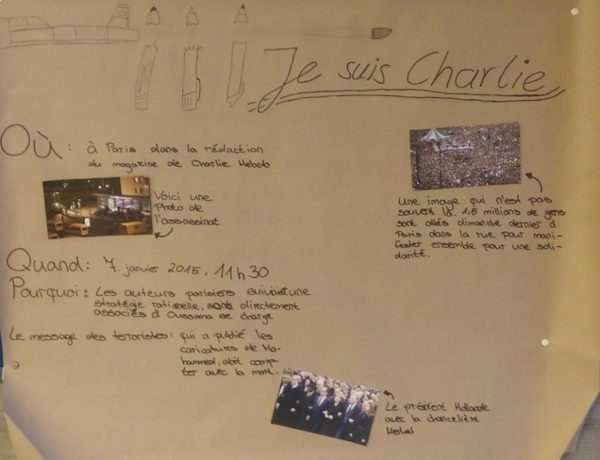 Je suis Charlie
Où: à Paris dans la rédaction
du magazine de Charlie Hebdo
Voici une
Photo de
l'assassinat
Une image qui n'est pas
souvent là. 1.5 millions de gens
sont allés dimanche dernier à
Paris dans la rue pour mani-
fester ensemble pour une soli-
darité.
Quand: 7. janvier 2015, 11h30
Pourquoi: Les auteurs parisiens suivaient une
stratégie rationelle, sont directement
associés à Oussama se charge
Le message des terroristes: qui a publié les
caricatures de Mo-
hammed, doit comp-
ter avec la mort.
Le président Hollande
avec la chancelière
Merkel